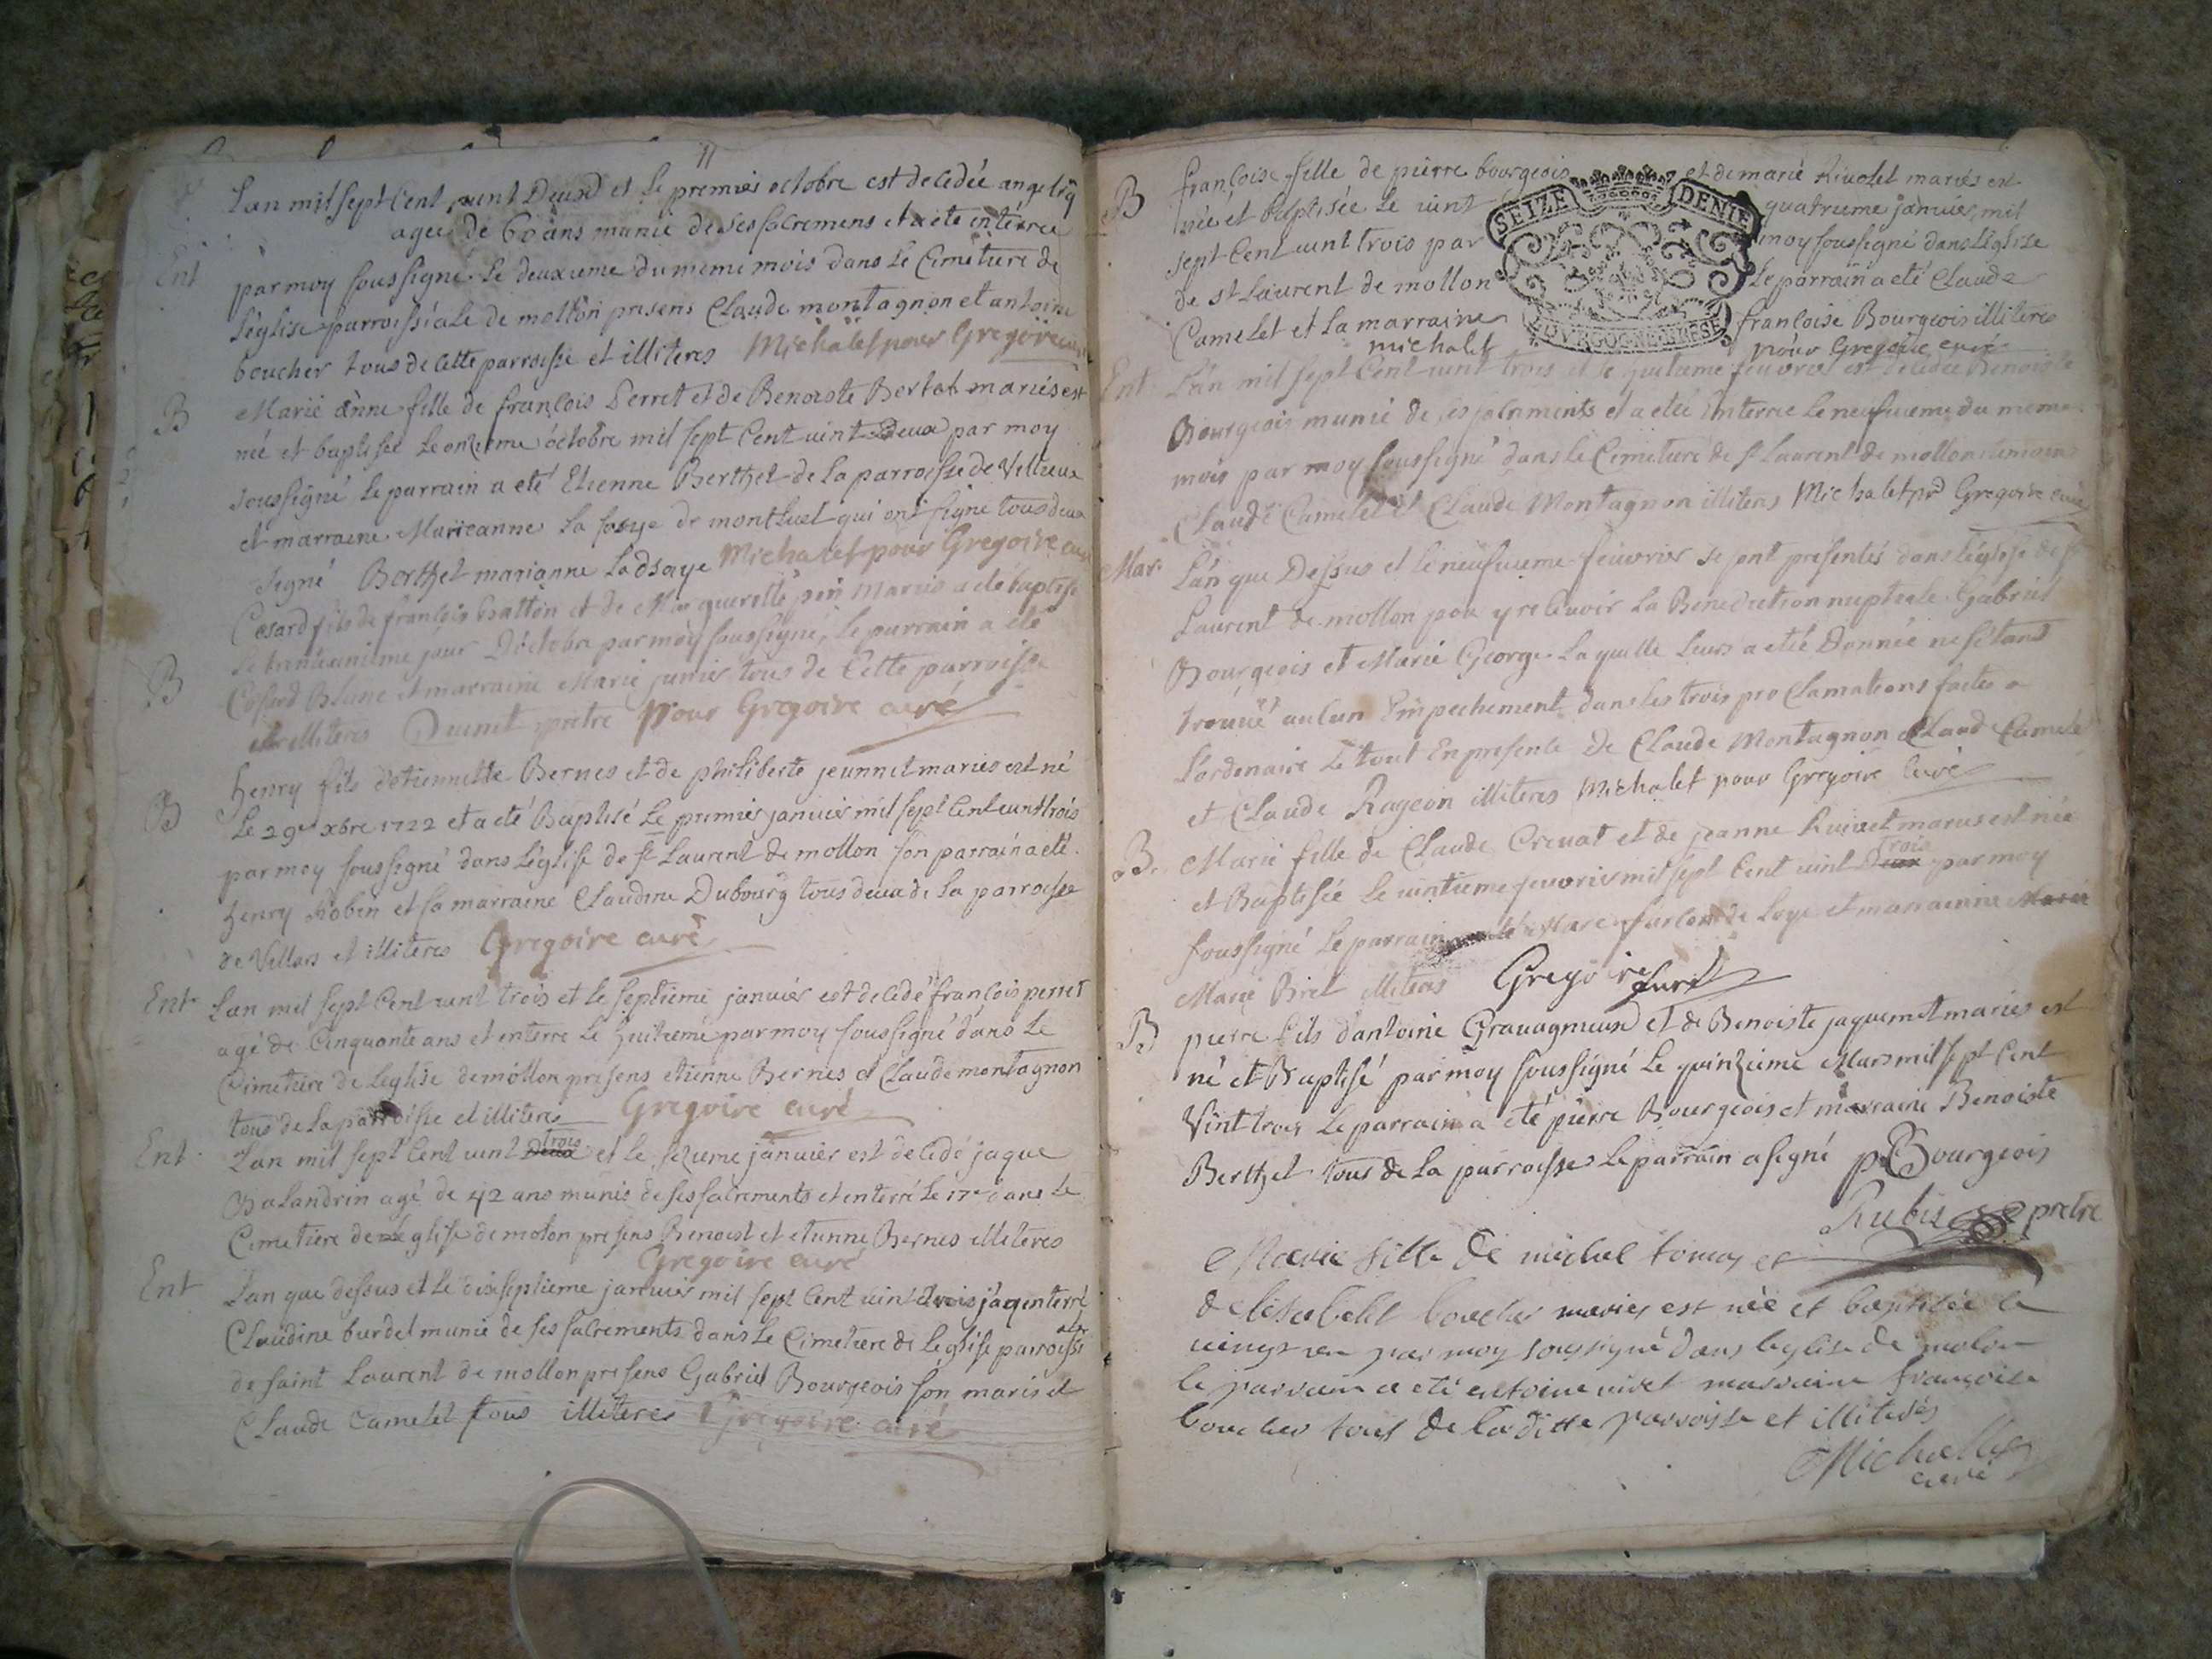 11
Lan mil sept Cent vint Deux et le premier octobre est decedée angeliq
agée de 60 ans munie de ses sacremens et a eté enterrée
Ent
par moy soussigné le deuxieme du meme mois dans le Cimetiere de
l'eglise parroissiale de mollon presens Claude montagnon et antoine
boucher tous de cette parroisse et illiteres Michalet pour Gregoire curé
B
Marie anne fille de françois Perret et de Benoiste Bertet mariés est
née et baptisée le onzieme octobre mil sept Cent vint Deux par moy
soussigné le parrain a eté Etienne Berthet de la parroisse de Villieux
et marraine Marieanne La de montluel qui ont signe tous deux
signé Berthet marianne Michalet pour Gregoire curé
Cesard fils de françois Gatton et de Marguerette mariés a eté baptisé
le jour D'octobre par moy soussigné, le parrain a eté
B
Cesard Blanc et marraine Marie tous de Cette parroisse
et illiteres pretre pour Gregoire curé
B
henry fils detiennette Bernes et de philiberte jeunnet mariés est né
Le 29e xbre 1722 et a eté Baptisé Le premier janvier mil sept Cent vint trois
par moy soussigné dans L'eglise de st Laurent de mollon son parrain a eté
henry Robin et sa marraine Claudine Dubourg tous deux de la parroisse
de Villars et illiteres Gregoire curé
Ent
Lan mil sept Cent vint trois et le septieme janvier est decedé françois perret
agé de Cinquante ans et enterre Le huitieme par moy soussigné dans Le
Cimetiere de Leglise de mollon presens etienne Bernes et Claude montagnon
tous de la parroisse et illiteres Gregoire curé
Ent
Lan mil sept Cent vint Deux trois et le sezieme janvier est decedé jaque
Balandrin agé de 42 ans munis de ses sacrements et enterré Le 17e dans Le
Cimetiere de Leglise de molon presens Benoist et etienne Bernes illiteres
Gregoire curé
Ent
Lan que dessus et le dixseptieme janvier mil sept Cent vint trois j'ay enterré
Claudine burdet munie de ses sacrements dans Le Cimetiere de Leglise parroissi ale
de saint Laurent de mollon presens Gabriel Bourgeois son maris et
Claude Camelet tous illiteres Gregoire curé
B
françoise fille de pierre bourgeois et de marie Rivolet mariés est
née et baptisée Le vint quatrieme janvier mil
sept Cent vint trois par moy soussigné dans L'eglise
de st Laurent de mollon Le parrain a eté Claude
Camelet et La marraine françoise Bourgeois illiteres
michalet pour Gregoire curé
SEIZE DENIE
BOURGOGNE BRESSE
Ent
L'an mil sept Cent vint trois et le huitieme feuvrier est decedée Benoiste
Bourgeois munie de ses sacrments et a eté Enterrée Le neufvieme du meme
mois par moy soussigné dans le Cimetiere de st Laurent de mollon temoins
Claude Camelet et Claude Montagnon illiteres Michalet pr Gregoire curé
Mar.
L'an que Dessus et le neufvieme feuvrier se sont presentés dans L'eglise de st
Laurent de mollon pour y recevoir La Benediction nuptiale Gabriel
Bourgeois et Marie George La quelle Leurs a eté Donnée ne s'etant
trouvé aucun Empechement dans les trois proclamations faites a
L'ordenaire Le tout En presence de Claude Montagnon Claud Camelet
et Claude Rageon illiteres Michalet pour Gregoire Curé
B.
Marie fille de Claude Crevat et de jeanne Ruivet mariés est née
et Baptisée Le vintieme feuvrier mil sept Cent vint Deux trois par moy
soussigné Le parrain Marc de Loye et marrainne Marie
Marie Biret illiteres Gregoire Curé
B
pierre fils d'antoine Gravagnieux et de Benoiste jaquemet mariés est
né et Baptisé par moy soussigné Le quinzieme Mars mil sept Cent
Vint trois Le parrain a eté pierre Bourgeois et marraine Benoiste
Berthet tous de La parroisse Le parrain a signé p Bourgeois
Rubis pretre
Marie fille de michel tomas et
delisabeth boucher mariés est née et baptisée le
par moy soussigné dans leglise de molon
le parrain a eté antoine vivet marraine françoise
boucher tous de la ditte parroisse et illiterés
Michallet
curé